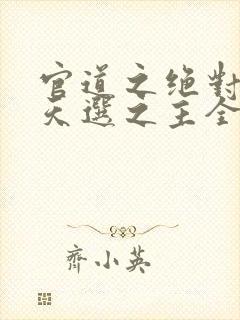 官道之绝對
天選之主全
齊小英